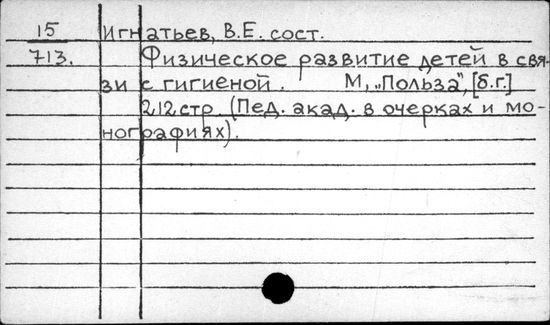 15 Игнатьев, В.Е. сост.
713. Физическое развитие детей в свя-
зи с гигиеной. М, „Польза", [б.г.]
212 стр. (Пед. акад. в очерках и мо-
нографиях).